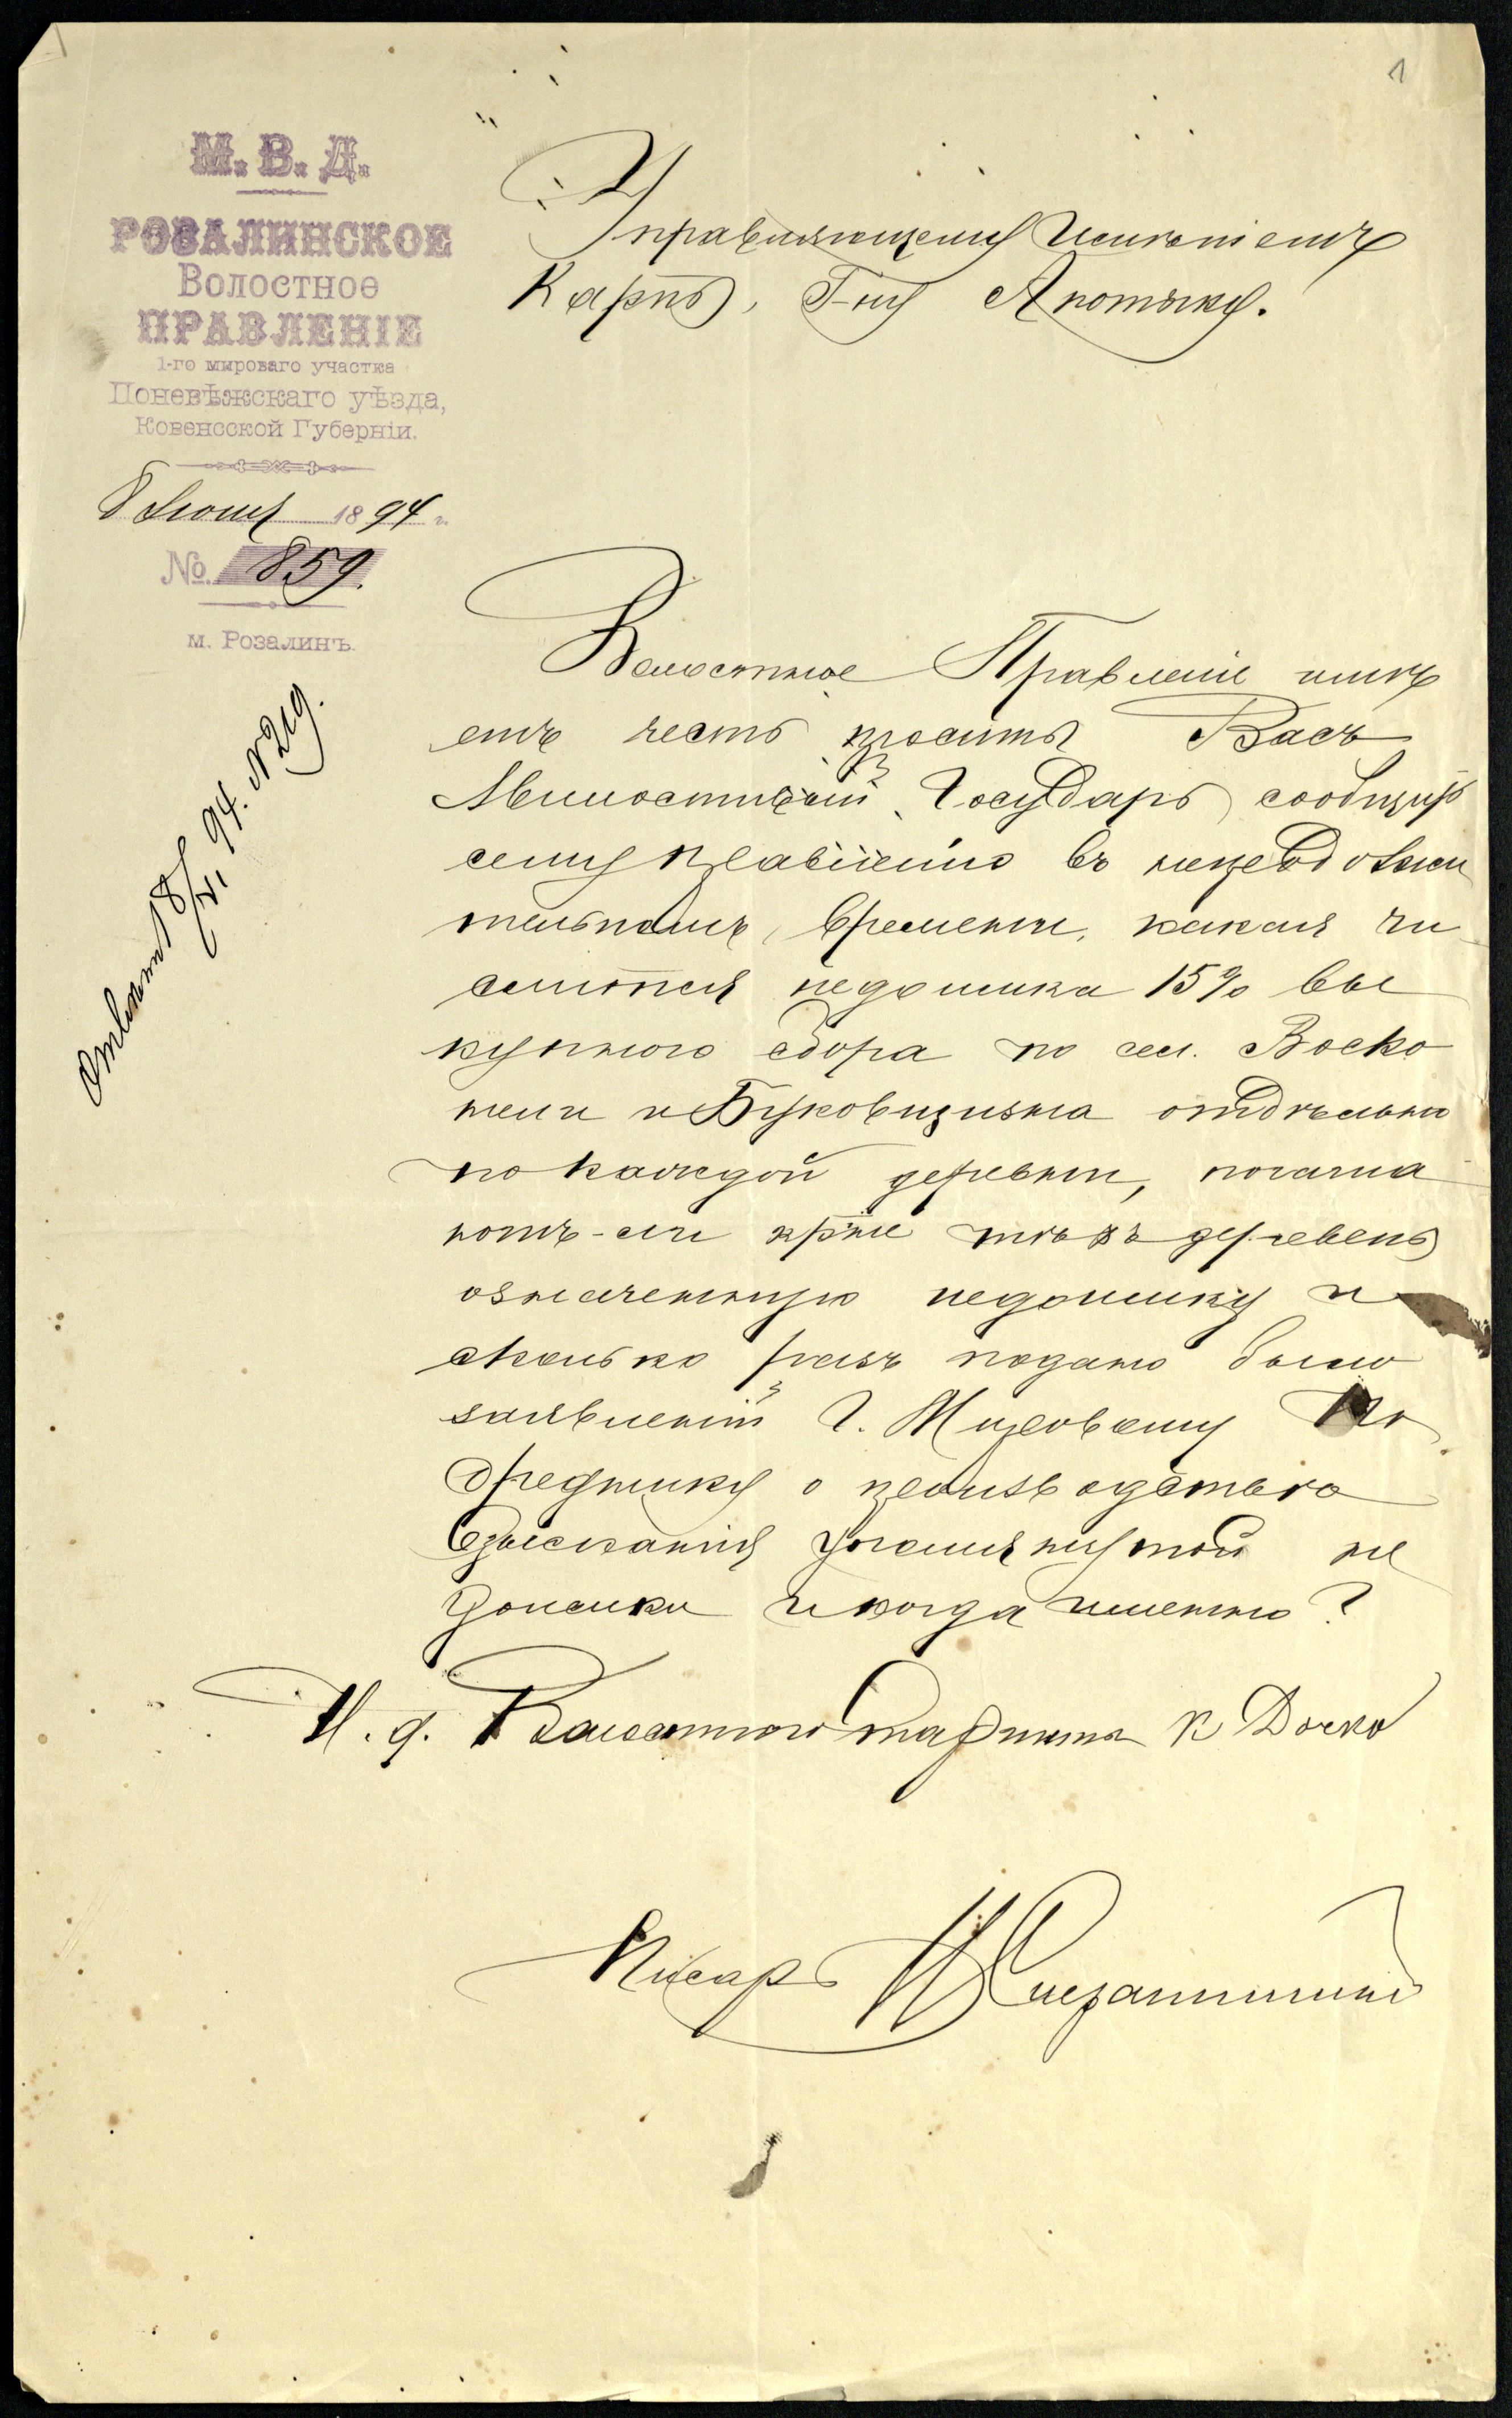 1
М. В. Д.
РОЗАЛИНСКОЕ
Волостное
ПРАВЛЕНІЕ
1-го мироваго участка
Поневѣжскаго уѣзда,
Ковенсской Губерніи.
8 Іюня 1894 г.
№ 859.
м. Розалинъ.
94. №219.
Управляющему Имѣніемъ
Карпь, Г-ну
Волостное Правленіе имѣ
етъ честь просить Васъ
Милостивый Государь сообщить
сему Правленію въ непродолжи
тельномъ времени, какая чи
слится недоимка 15% вы
купного сбора по сел.
и Буковщизна отдѣльно
по каждой деревни, погаша
ютъ-ли кр-не тѣхъ деревень
означенную недоимку и
сколько разъ подано было
заявленій Г. Мировому По
средннику о производствѣ
взысканія упомянутой не
доимки и когда именно?
И. д. Волостного Старшины К
Писарь